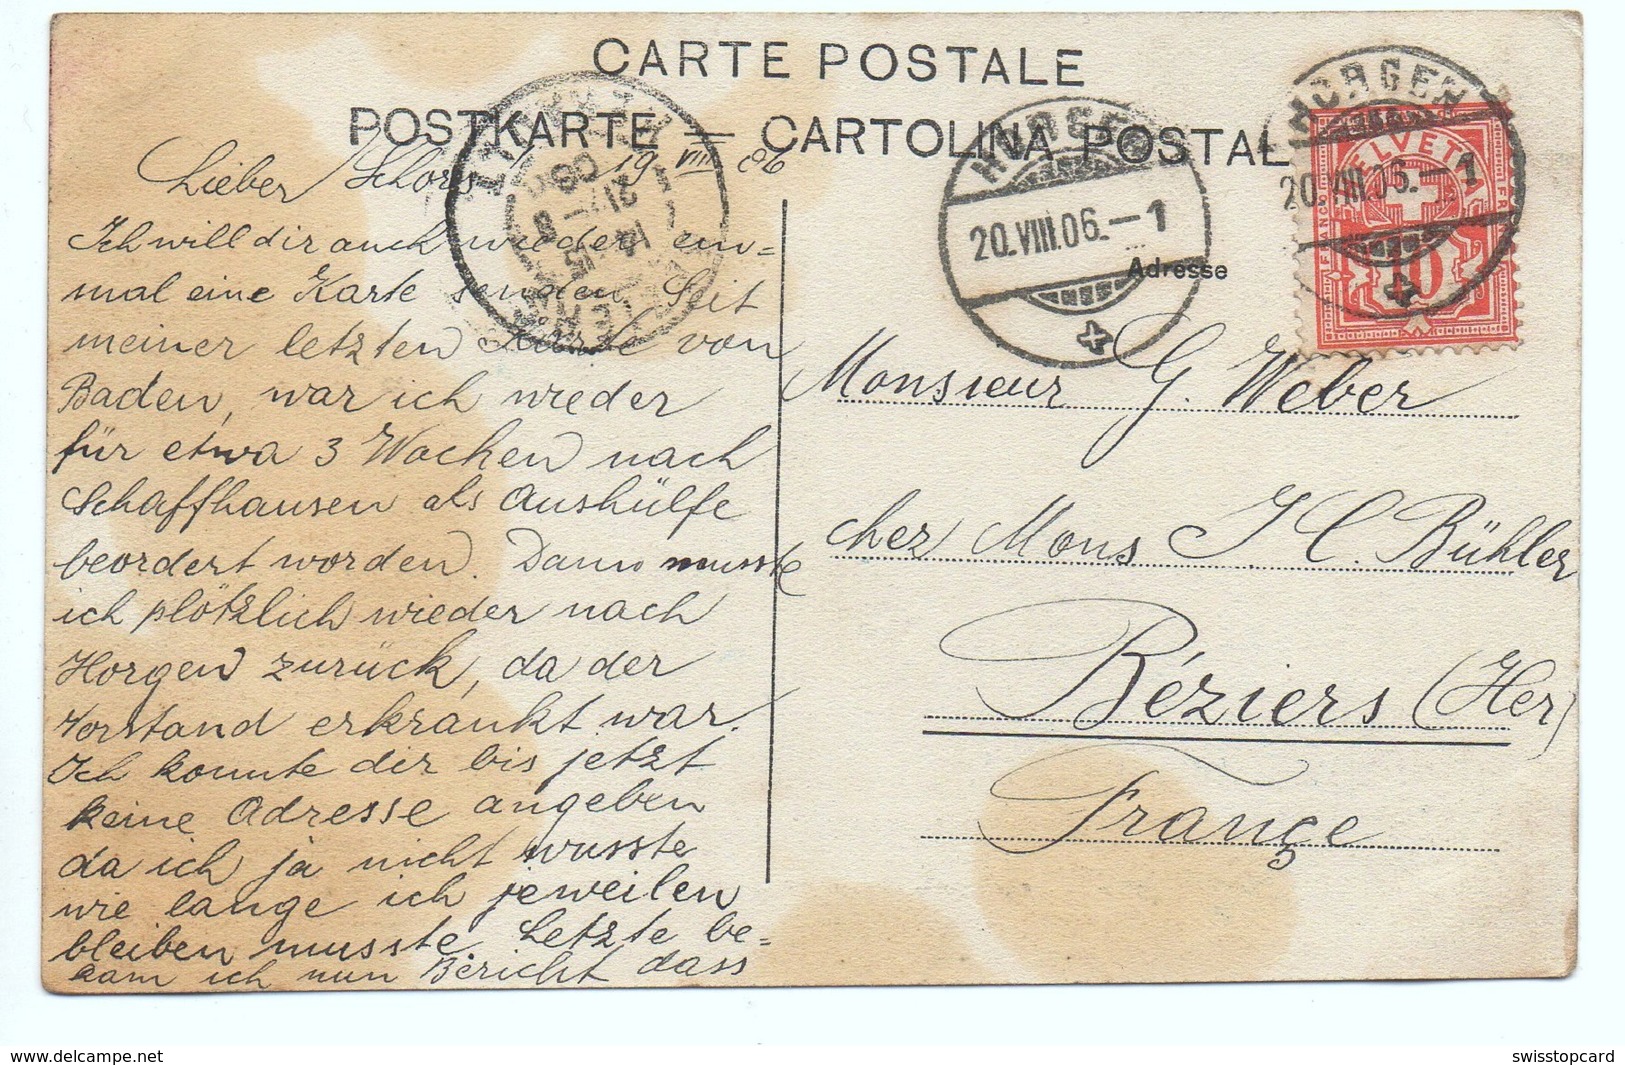 CARTE POSTALE
POSTKARTE — CARTOLINA POSTAL
19 VIII 06
Lieber Schorsch
Ich will dir auch wieder ein=
mal eine Karte senden. Seit
meiner letzten Karte von
Baden, war ich wieder
für etwa 3 Wochen nach
Schaffhausen als Aushülfe
beordert worden. Dann musste
ich plötzlich wieder nach
Horgen zurück, da der
Vorstand erkrankt war.
Ich konnte dir bis jetzt
keine Adresse angeben
da ich ja nicht wusste
wie lange ich jeweilen
bleiben musste. Letzte be=
kam ich nun Bericht dass
HORGEN
20.VIII.06.–1
HORGEN
20.VIII.06.–1
HELVETIA
FRANCO
10
Adresse
Monsieur G. Weber
chez Mons J C. Bühler
Béziers (Her)
France
www.delcampe.net
swisstopcard